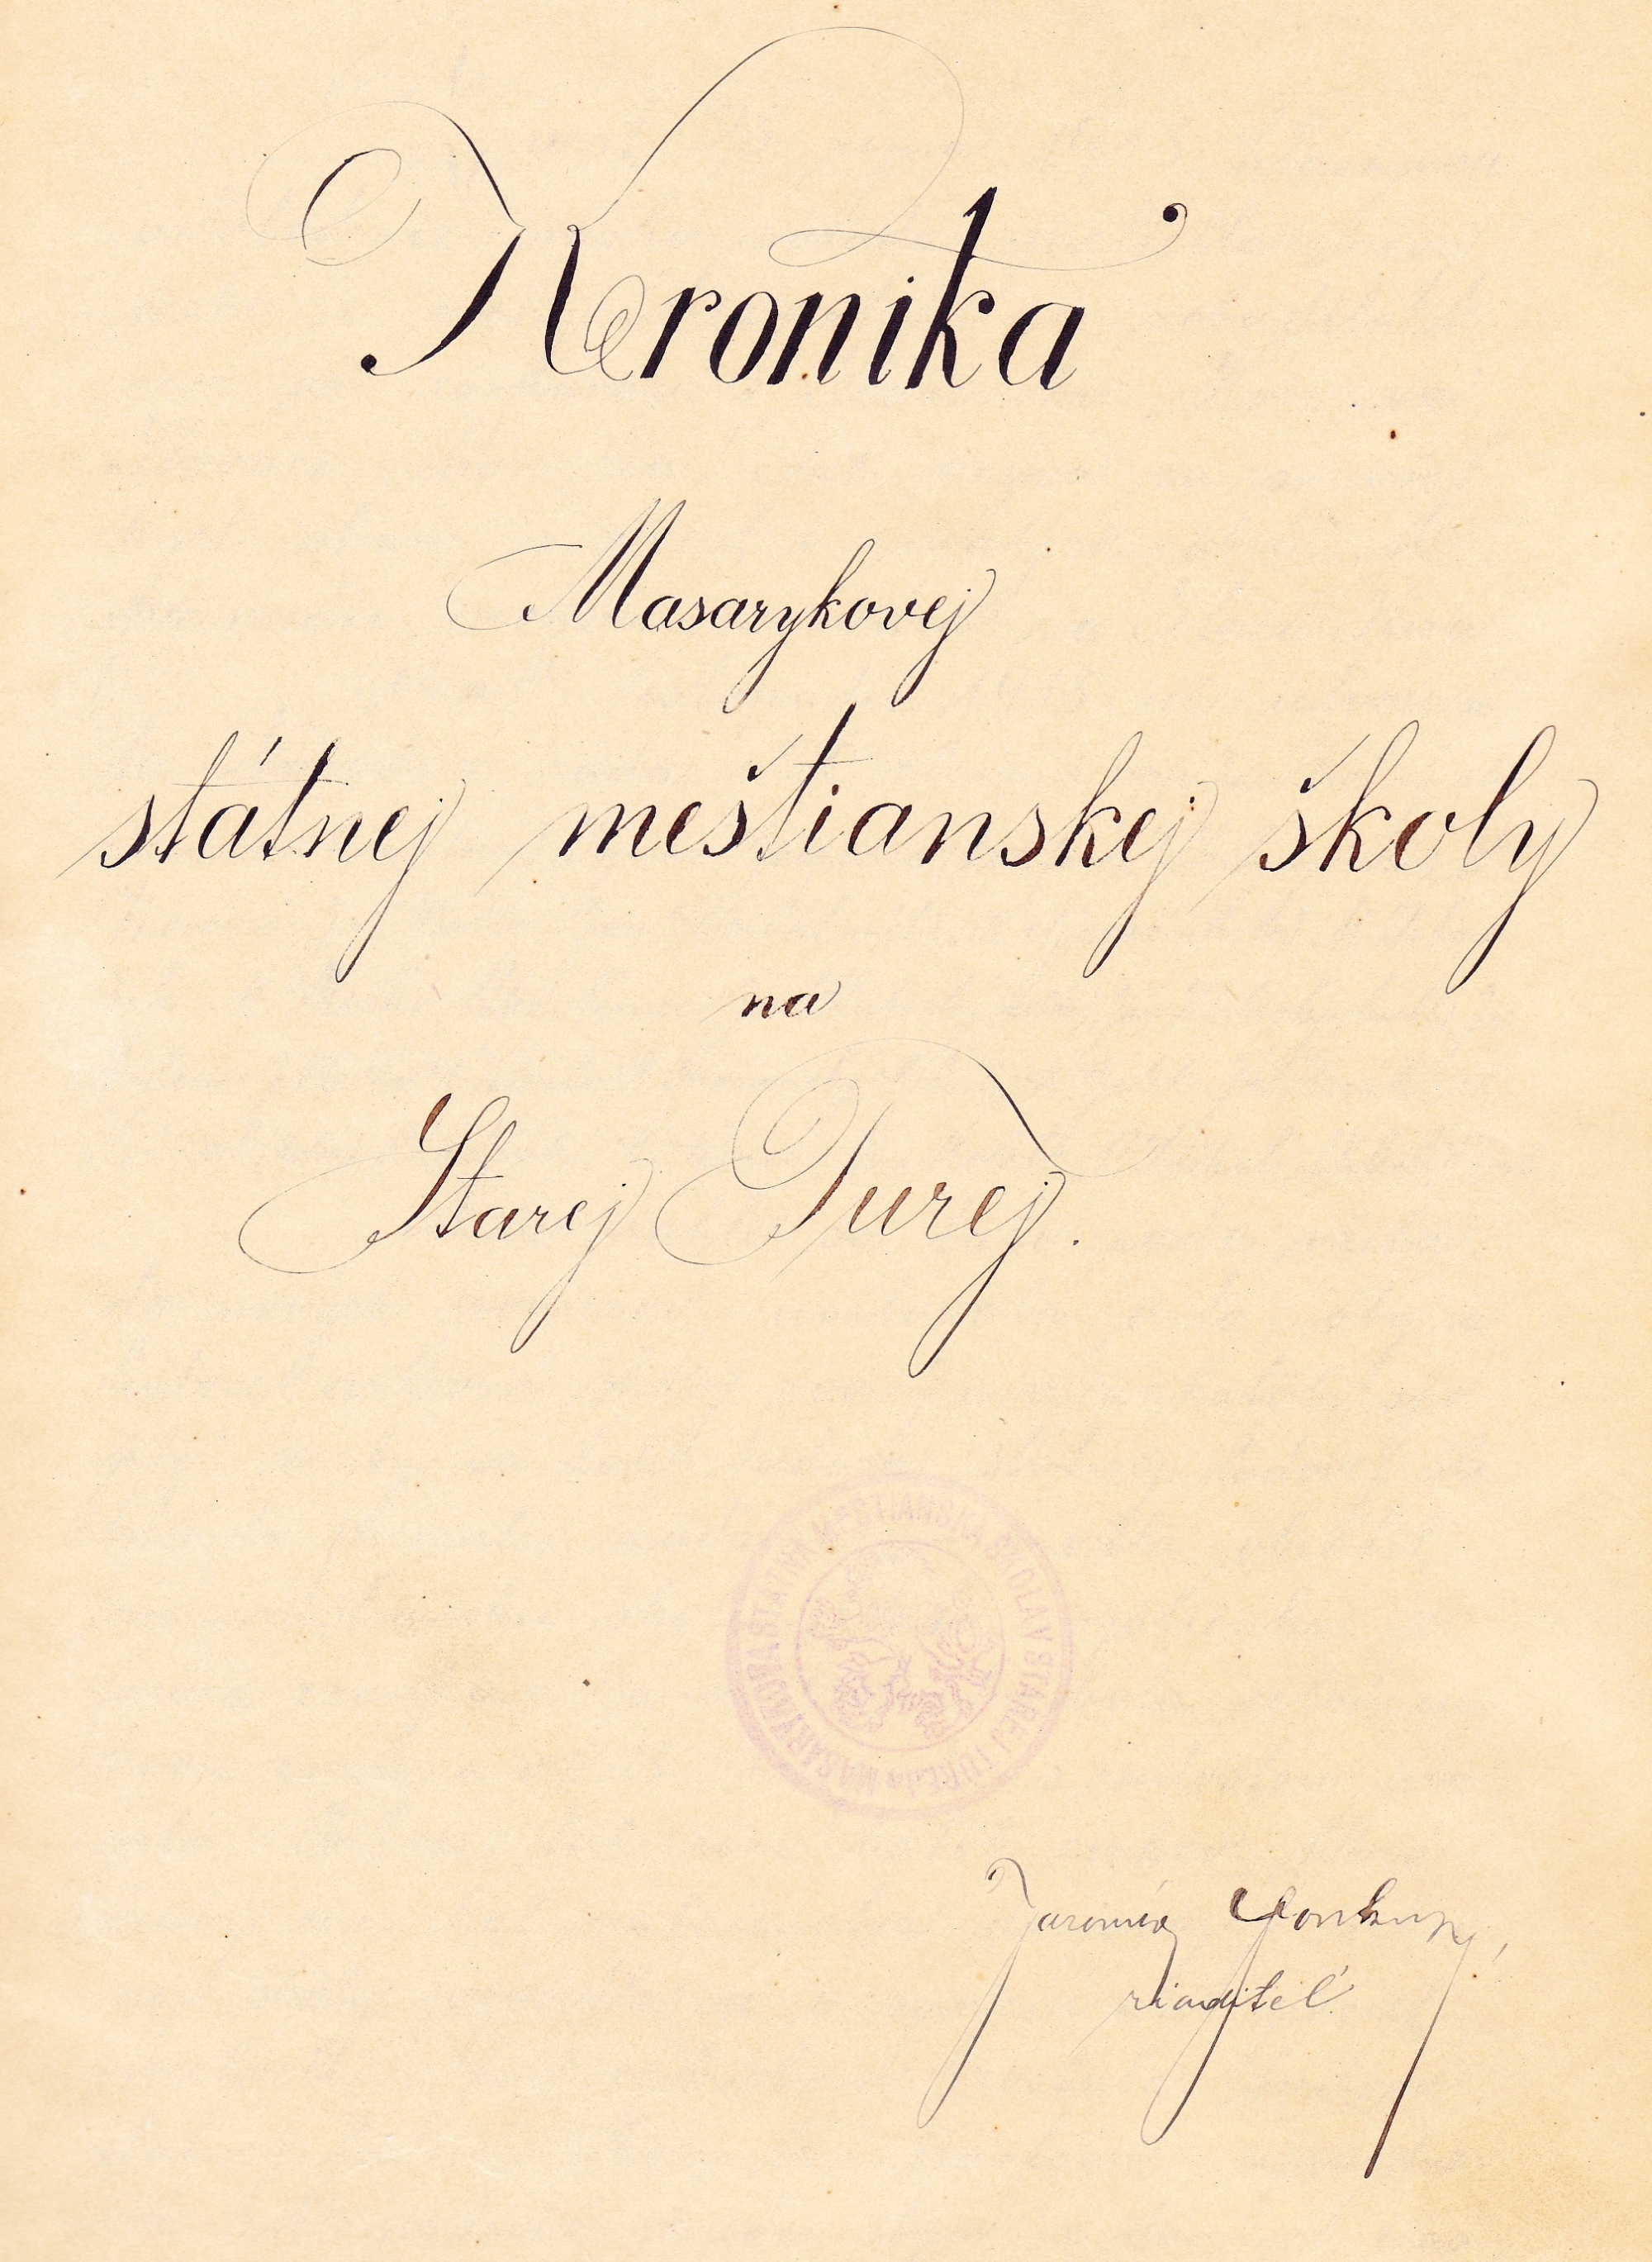 Kronika
Masarykovej
státnej meštianskej školy
na
Starej Turej.
MASARYKOVA ŠTÁTNA MEŠTIANSKA ŠKOLA V STAREJ TUREJ
Jaromír
riaditeľ